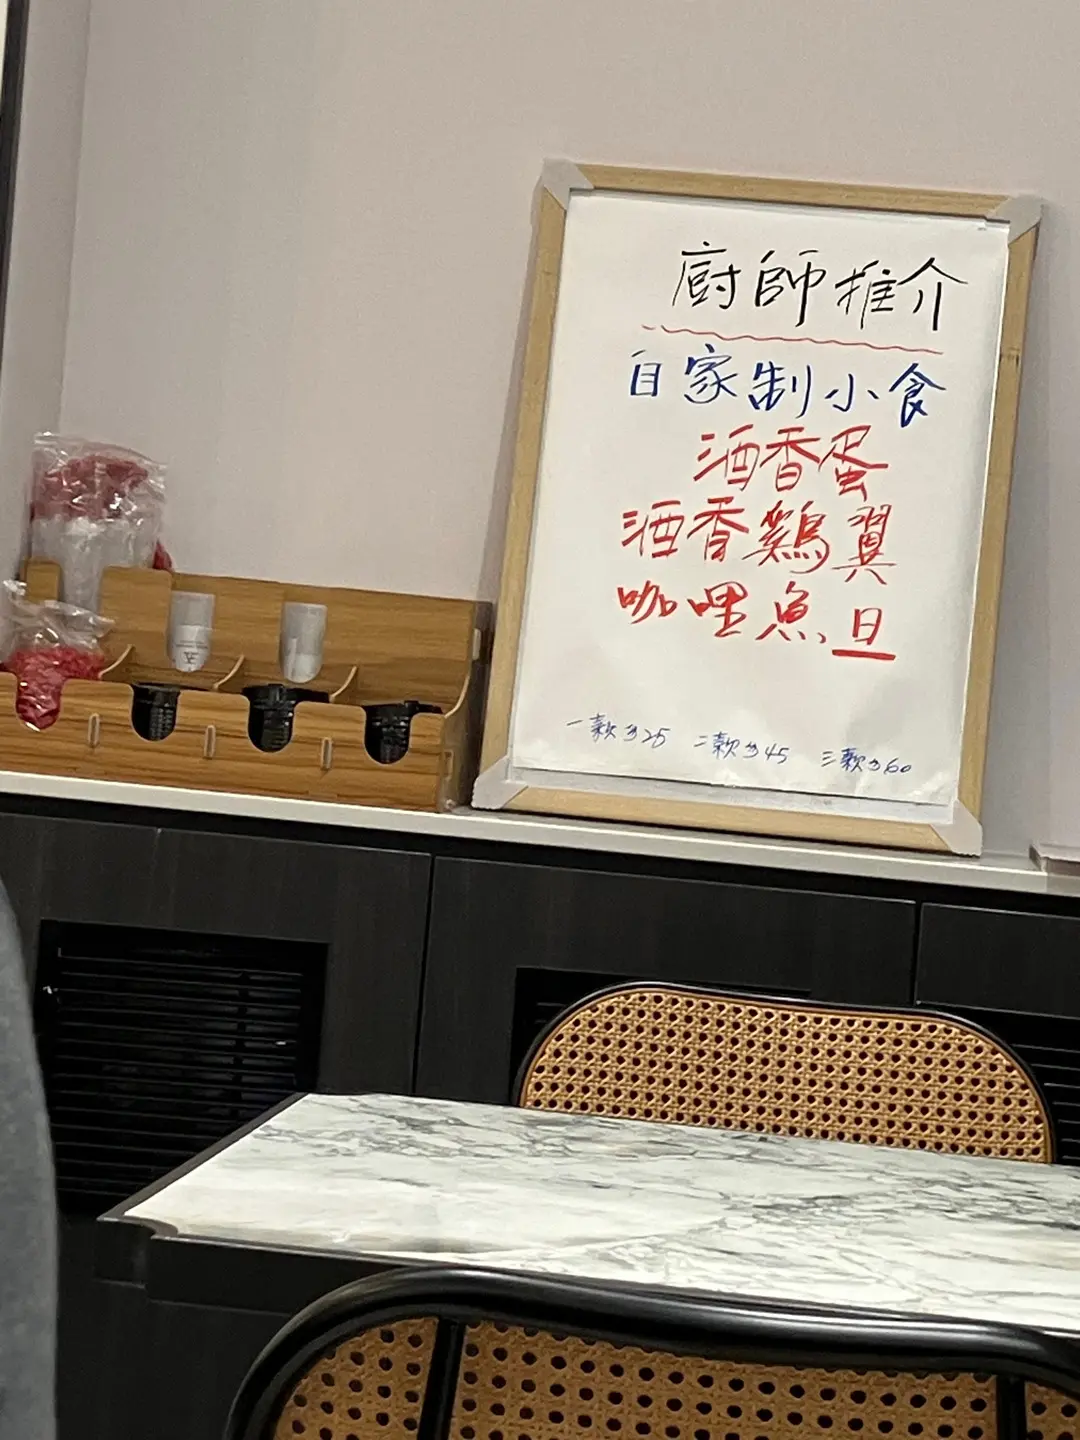 廚師推介
自家制小食
酒香蛋
酒香鷄翼
咖哩魚旦
一款$25 二款$45 三款$60